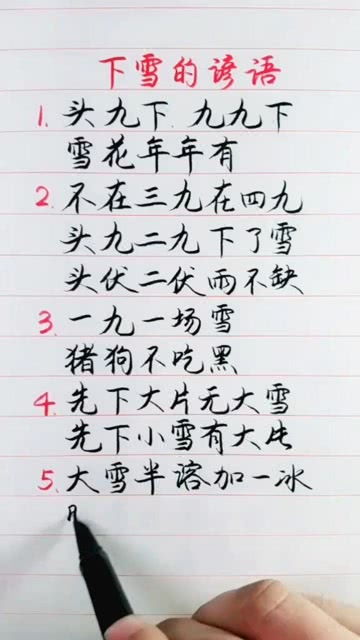 下雪的谚语
1. 头九下 九九下
雪花年年有
2. 不在三九在四九
头九二九下了雪
头伏二伏雨不缺
3. 一九一场雪
猪狗不吃黑
4. 先下大片无大雪
先下小雪有大片
5. 大雪半溶加一冰